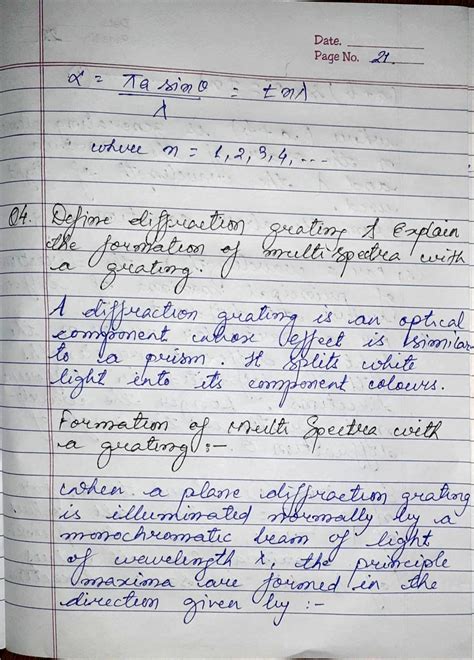 Date.
Page No. 21.
α = πa sinθ / λ = ± nλ
where n = 1, 2, 3, 4, ...
Q4. Define diffraction grating & Explain
the formation of multi spectra with
a grating.
A diffraction grating is an optical
component whose effect is similar
to a prism. It splits white
light into its component colours.
Formation of Multi Spectra with
a grating :-
When a plane diffraction grating
is illuminated normally by a
monochromatic beam of light
of wavelength λ, the principle
maxima are formed in the
direction given by :-